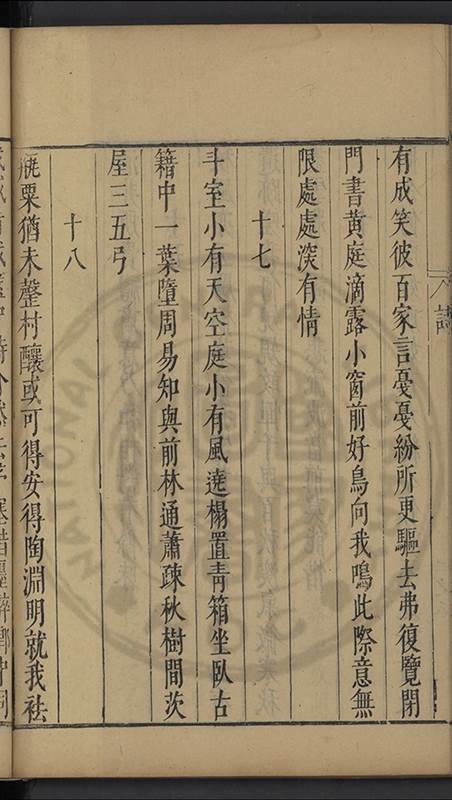 有成笑彼百家言憂憂紛所更驅去弗復覽閉
門書黃庭滴露小窗前好鳥向我鳴此際意無
限處處深有情
十七
斗室小有天空庭小有風遶榻置青箱坐臥古
籍中一葉墮周易知與前林通蕭疎秋樹間茨
屋三五弓
十八
瓶粟猶未罄村釀或可得安得陶淵明就我袪